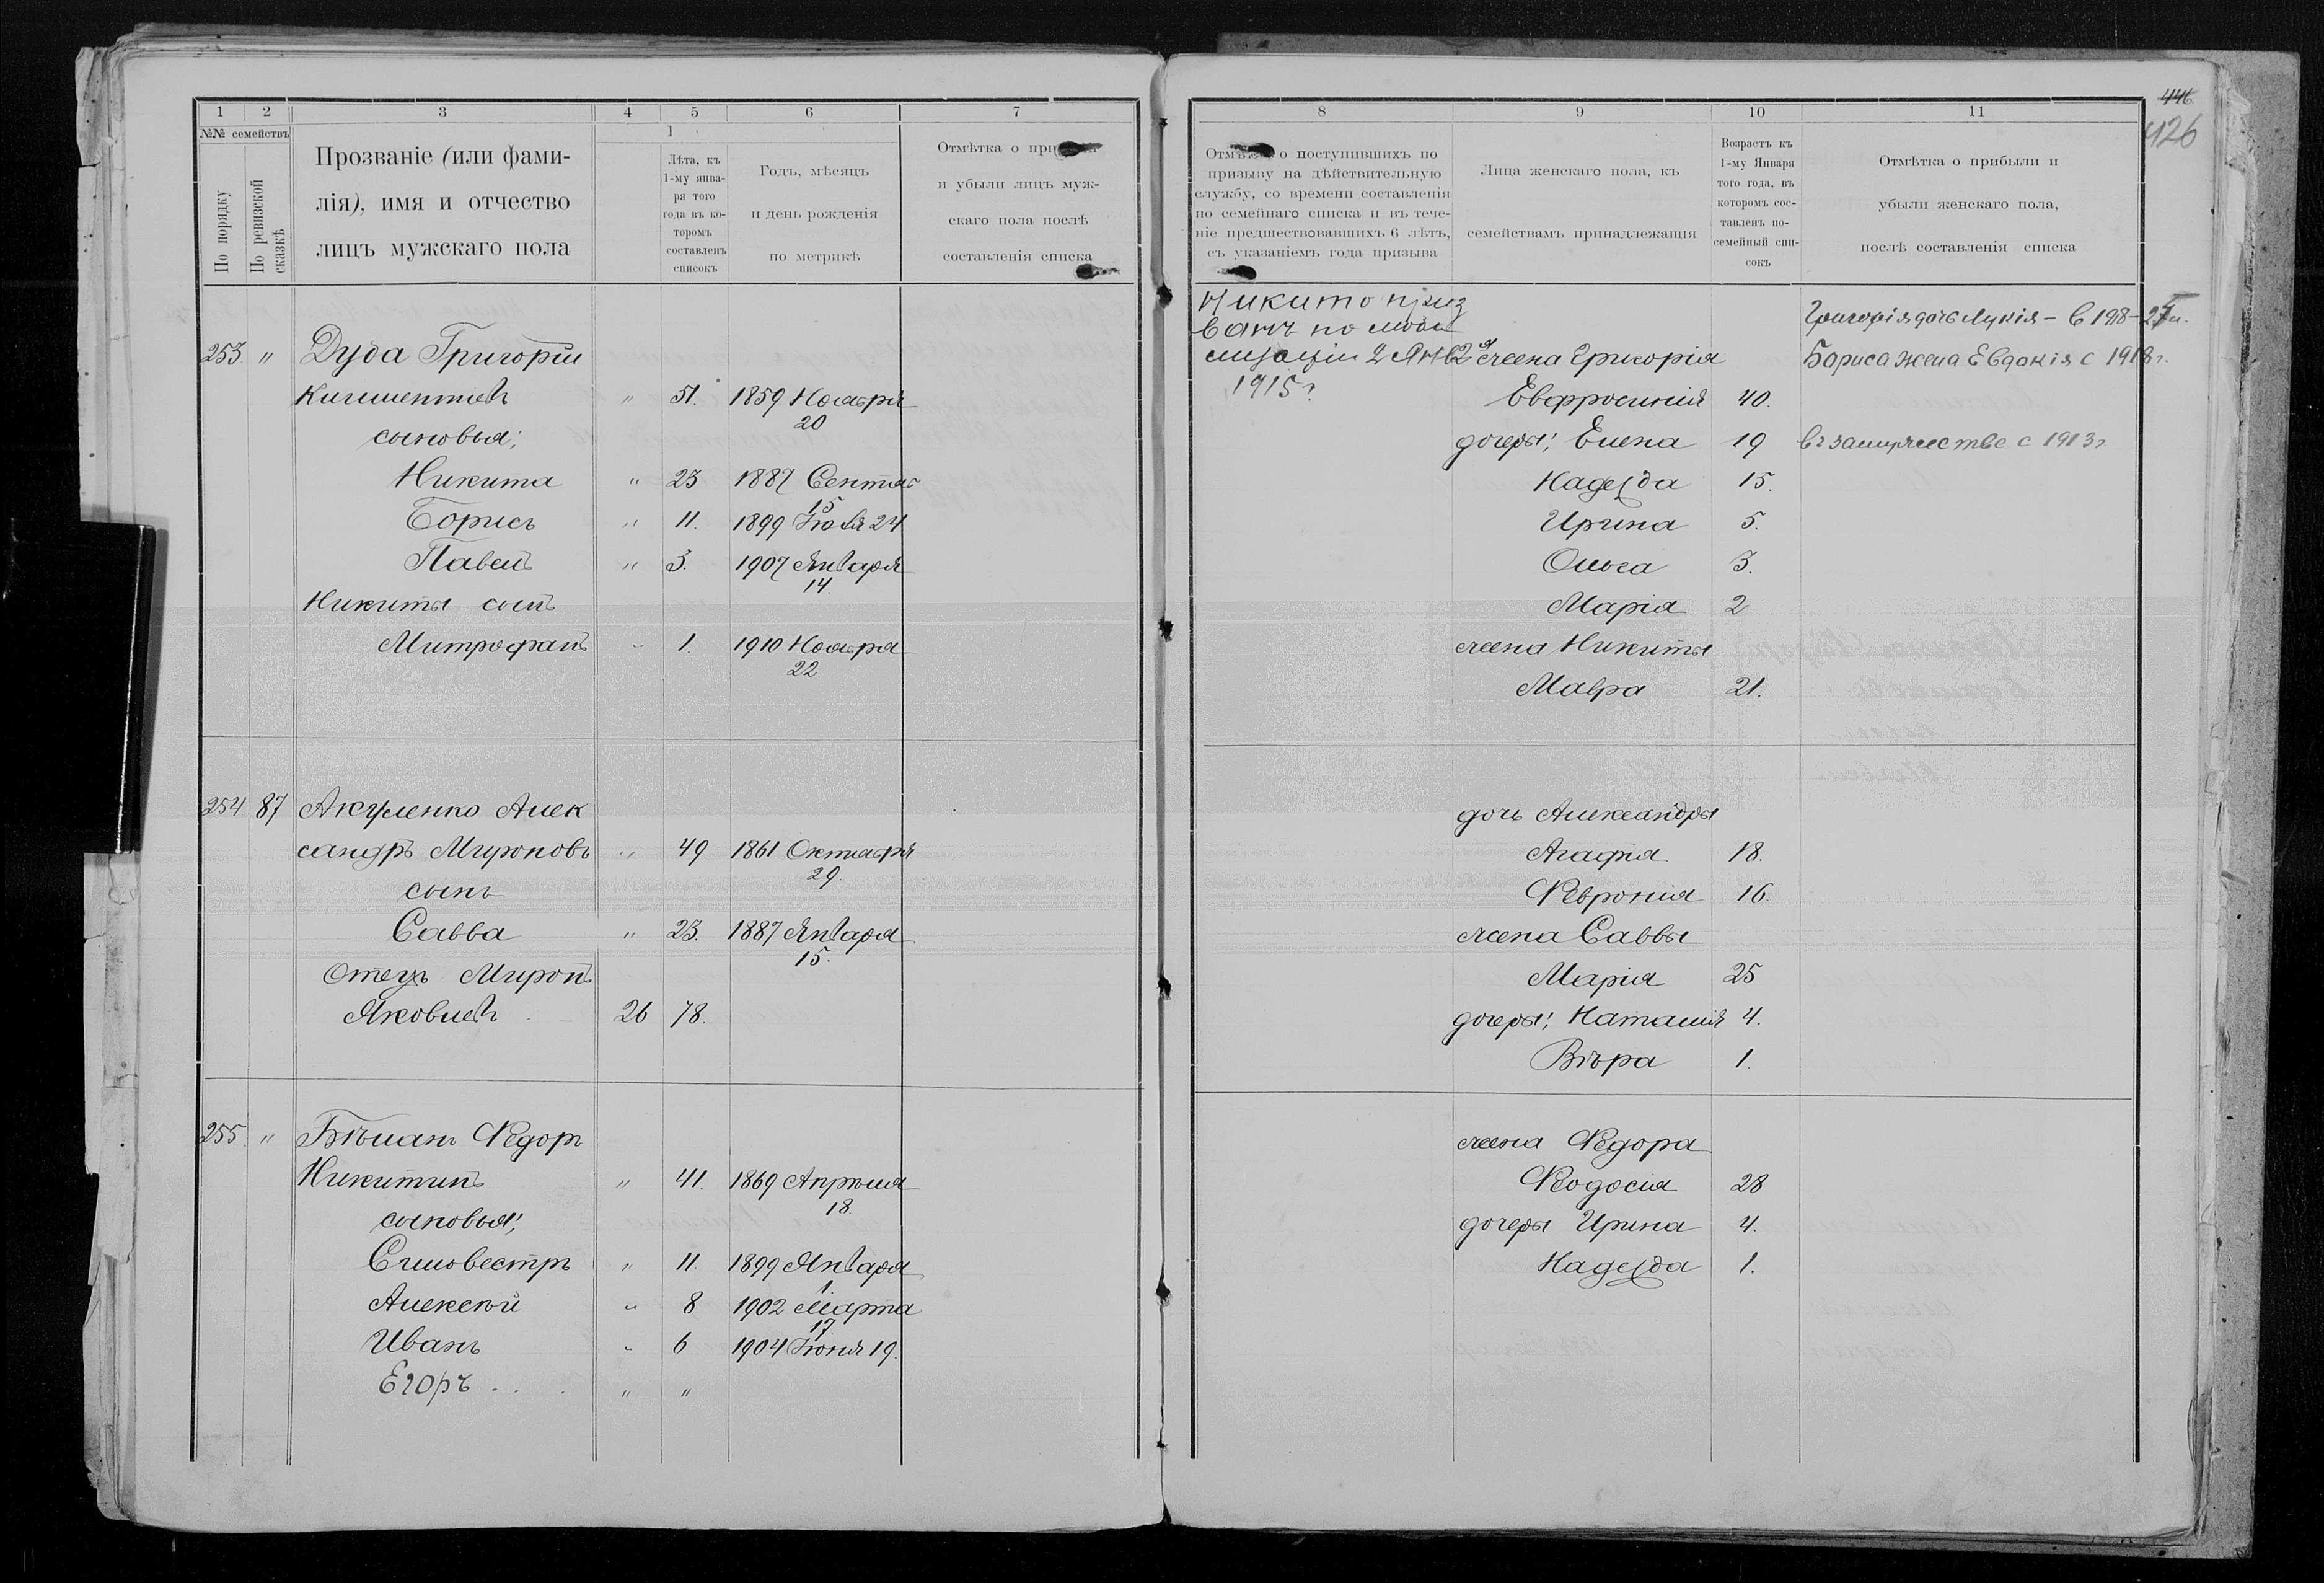 1 2 3 4 5 6 7
№№ семействъ
По порядку
По ревизской сказкѣ
Прозваніе (или фами-
лія), имя и отчество
лицъ мужскаго пола
1
Лѣта, къ
1-му янва-
ря того
года въ ко-
торомъ
составленъ
списокъ
Годъ, мѣсяцъ
и день рожденія
по метрикѣ
Отмѣтка о
и убыли лицъ муж-
скаго пола послѣ
составленія списка
253 " Дуда Григорій
Климентовъ " 51. 1859 Ноября
20
сыновья;
Никита " 23 1887 Сентяб
15
Борисъ " 11. 1899 Іюля 24
Павелъ " 3. 1907 Января
14.
Никиты сынъ
Митрофанъ " 1. 1910 Ноября
22.
254 87 Акуленко Алек
сандръ Мироновъ " 49 1861 Октября
29.
сынъ
Савва " 23. 1887 Января
15.
Отецъ Миронъ
Яковлевъ 26 78.
255. " Бѣланъ Ѳедоръ
Никитинъ " 41. 1869 Апрѣля
18.
сыновья;
Сильвестръ " 11. 1899 Января
1
Алексѣй " 8 1902 Марта
17
Иванъ " 6 1904 Іюня 19.
Егоръ " "
8 9 10 11
446
426
о поступившихъ по
призыву на дѣйствительную
службу, со времени составленія
по семейнаго списка и въ тече-
ніе предшествовавшихъ 6 лѣтъ,
съ указаніемъ года призыва
Лица женскаго пола, къ
семействамъ принадлежащія
Возрастъ къ
1-му Января
того года, въ
которомъ сос-
тавленъ по-
семейный спи-
сокъ
Отмѣтка о прибыли и
убыли женскаго пола,
послѣ составленія списка
Никито приз
ванъ по моби
лизаціи 2 Янв
1915 г.
Григорія дочь Лукія
жена Григорія Бориса жена Евдокія с 1918 г.
Евфросинія 40.
дочери; Елена 19 въ замужестве с 1913 г
Надежда 15.
Ирина 5.
Ольга 3.
Марія 2
жена Никиты
Мавра 21.
дочь Александра
Агафія 18.
Ѳевронія 16.
жена Саввы
Марія 25
дочери; Наталія 4.
Вѣра 1.
жена Ѳедора
Ѳеодосія 28
дочери Ирина 4.
Надежда 1.